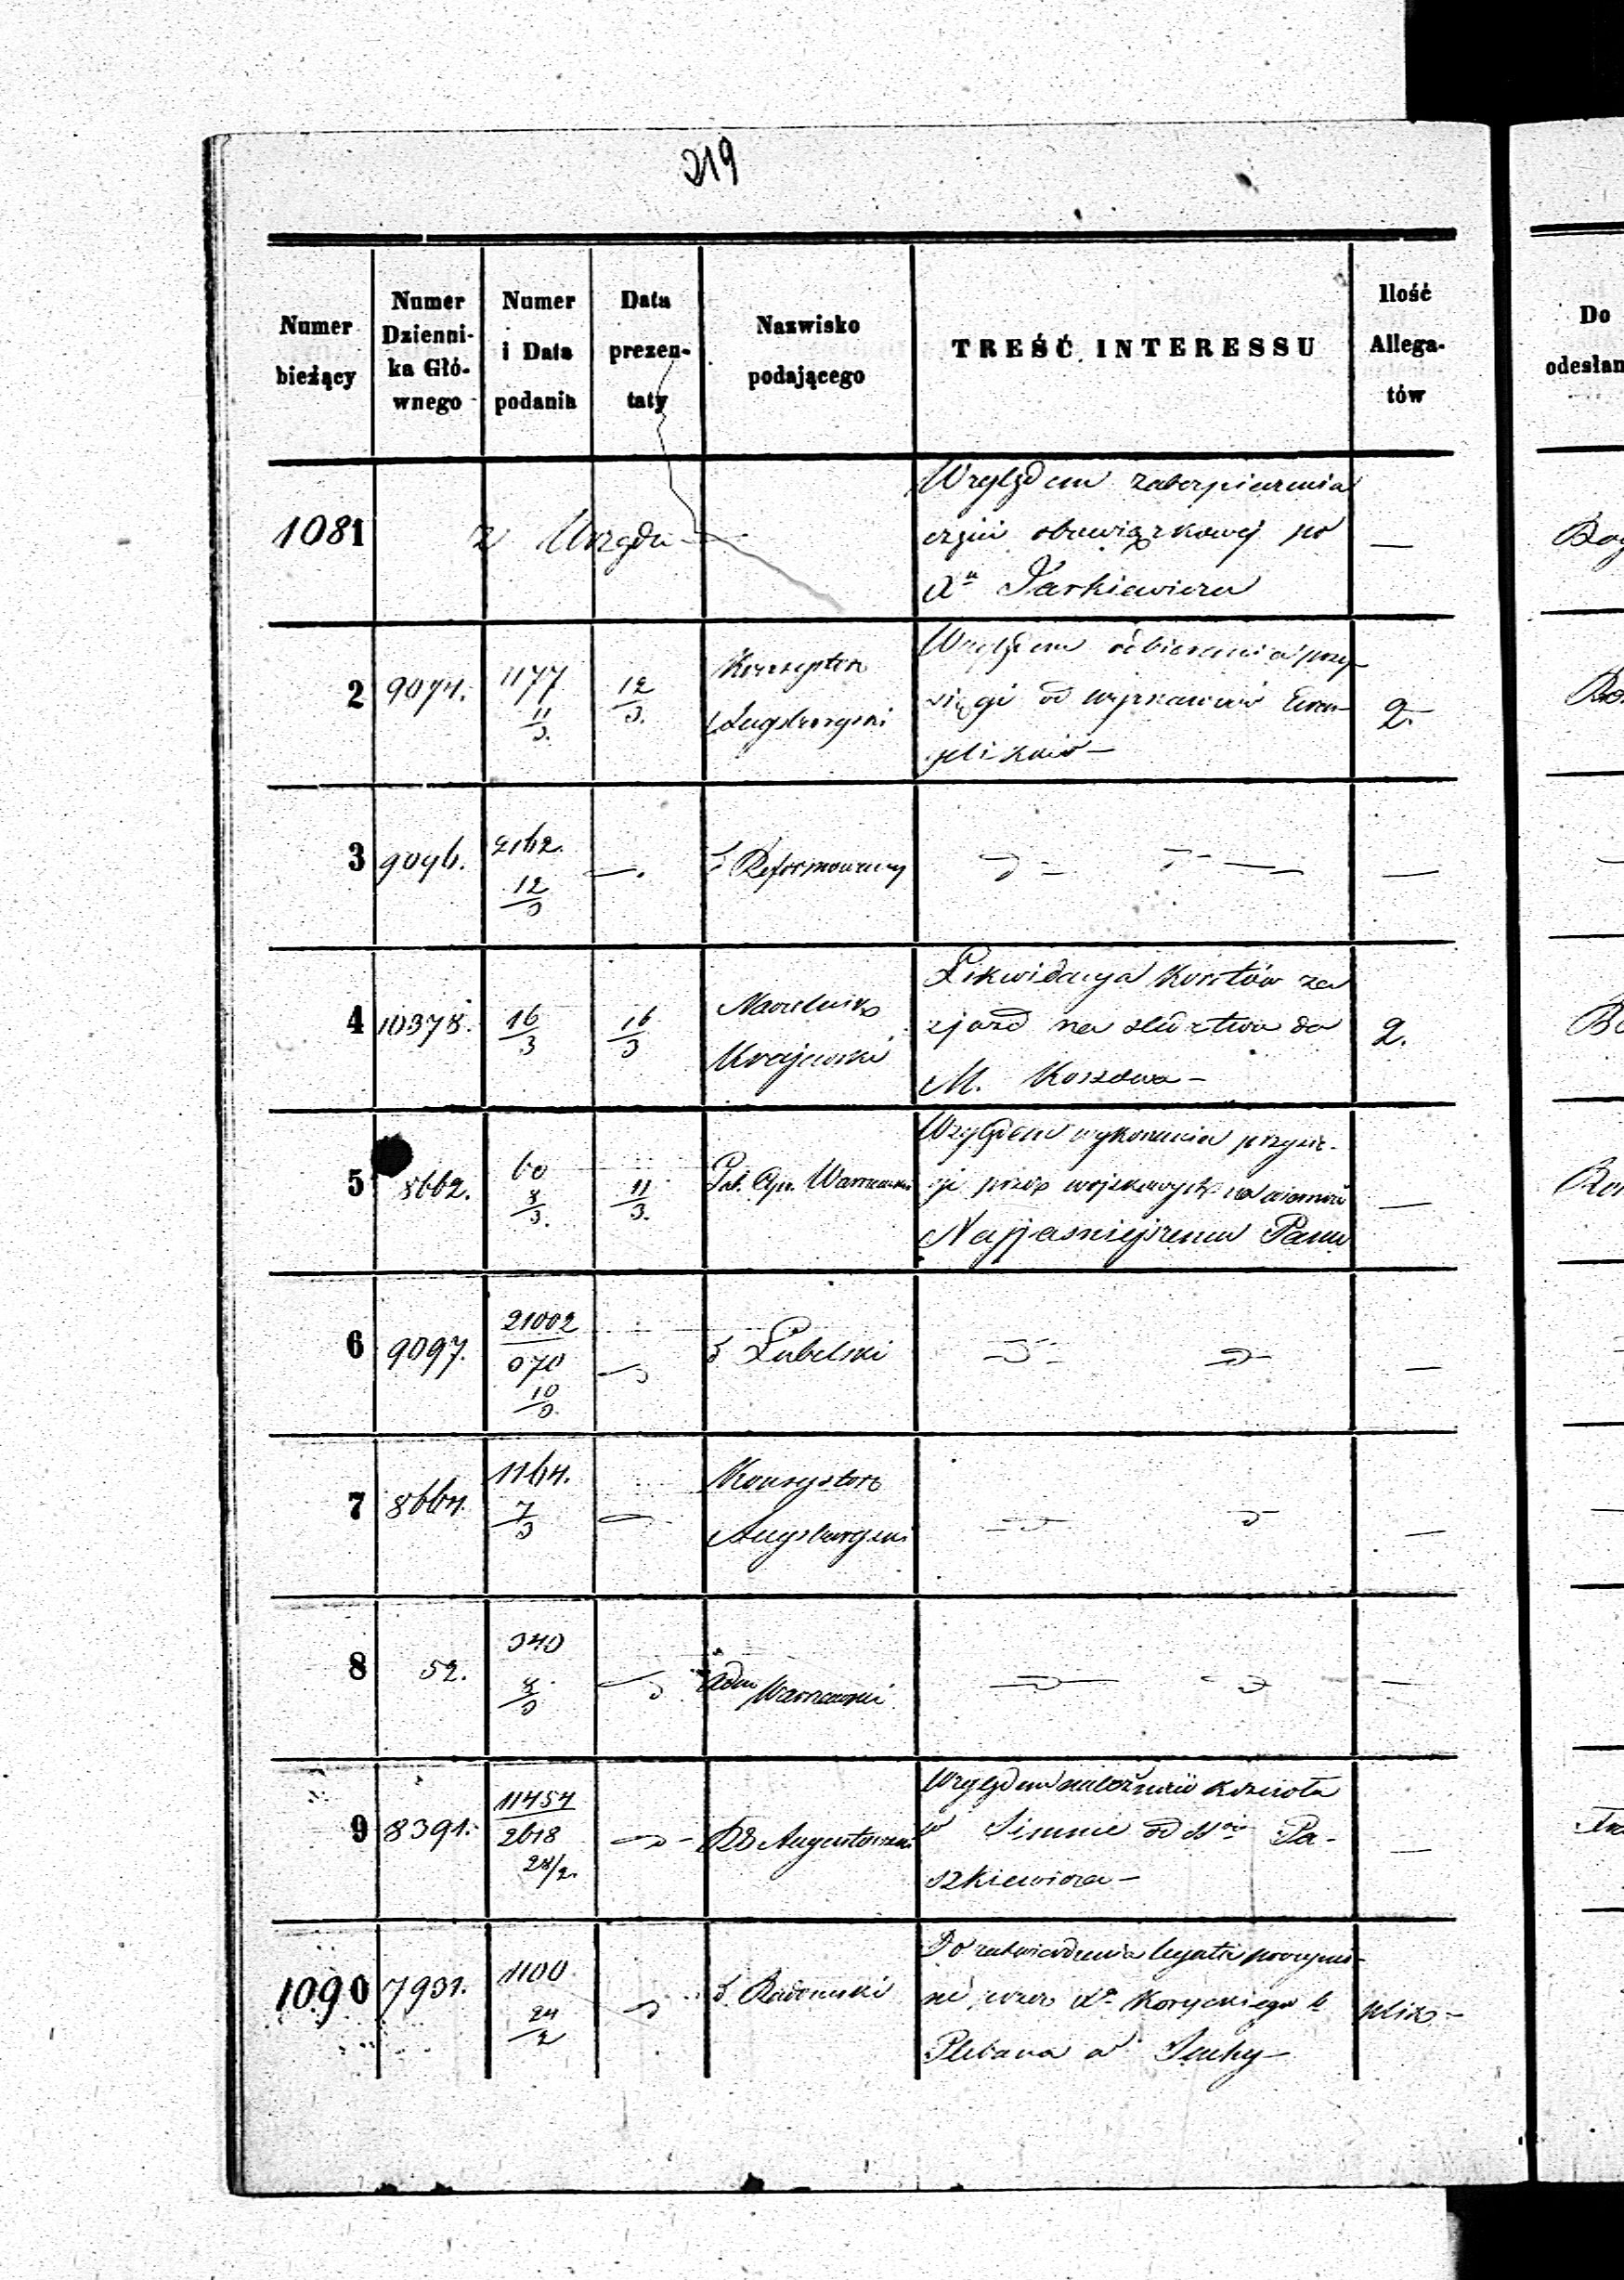 219
Numer bieżący
Numer Dzienni-ka Głó-wnego
Numer i Data podania
Data prezen-taty
Nazwisko podającego
TREŚĆ INTERESSU
Ilość Allega-tów
Do
odesłan
1081
z Urzędu
Względem zabezpieczenia
obowiązkowej po
Xu Jarkiewicza
—
2
9074.
1177
11/3.
12/3.
Konsystorz
Augsburgski
Względem odbierania przy-
sięgi od wyznawców Ewan-
gelików —
2.
3
9096.
2162.
12/3
—.
Reformowany
—
4
10378.
16/3
16/3
Naczelnik
Krajewski
Likwidacya kosztów za
zjazd na śledztwo do
M. Koszowa —
2.
5
8662.
60
8/3.
11/3.
Gub. Cyw. Warszawski
Względem wykonania przysię-
gi przez wojskowych na wierność
Najjaśniejszemu Panu
—
6
9097.
21002
070
10/3.
Lubelski
—
7
8664.
1164.
7/3
Konsystorz
Augsburgski
—
8
52.
340
8/3
Adm Warszawski
—
9
8391.
11454
2618
28/2.
RG Augustowski
Względem należności kościoła
w Simnie od
Pa-
szkiewicza —
—
1090
7931.
1100
24/2
Radomski
Do zatwierdzenia legata poczynio-
ne przez Xa Koryckiego b.
Plebana
plik —